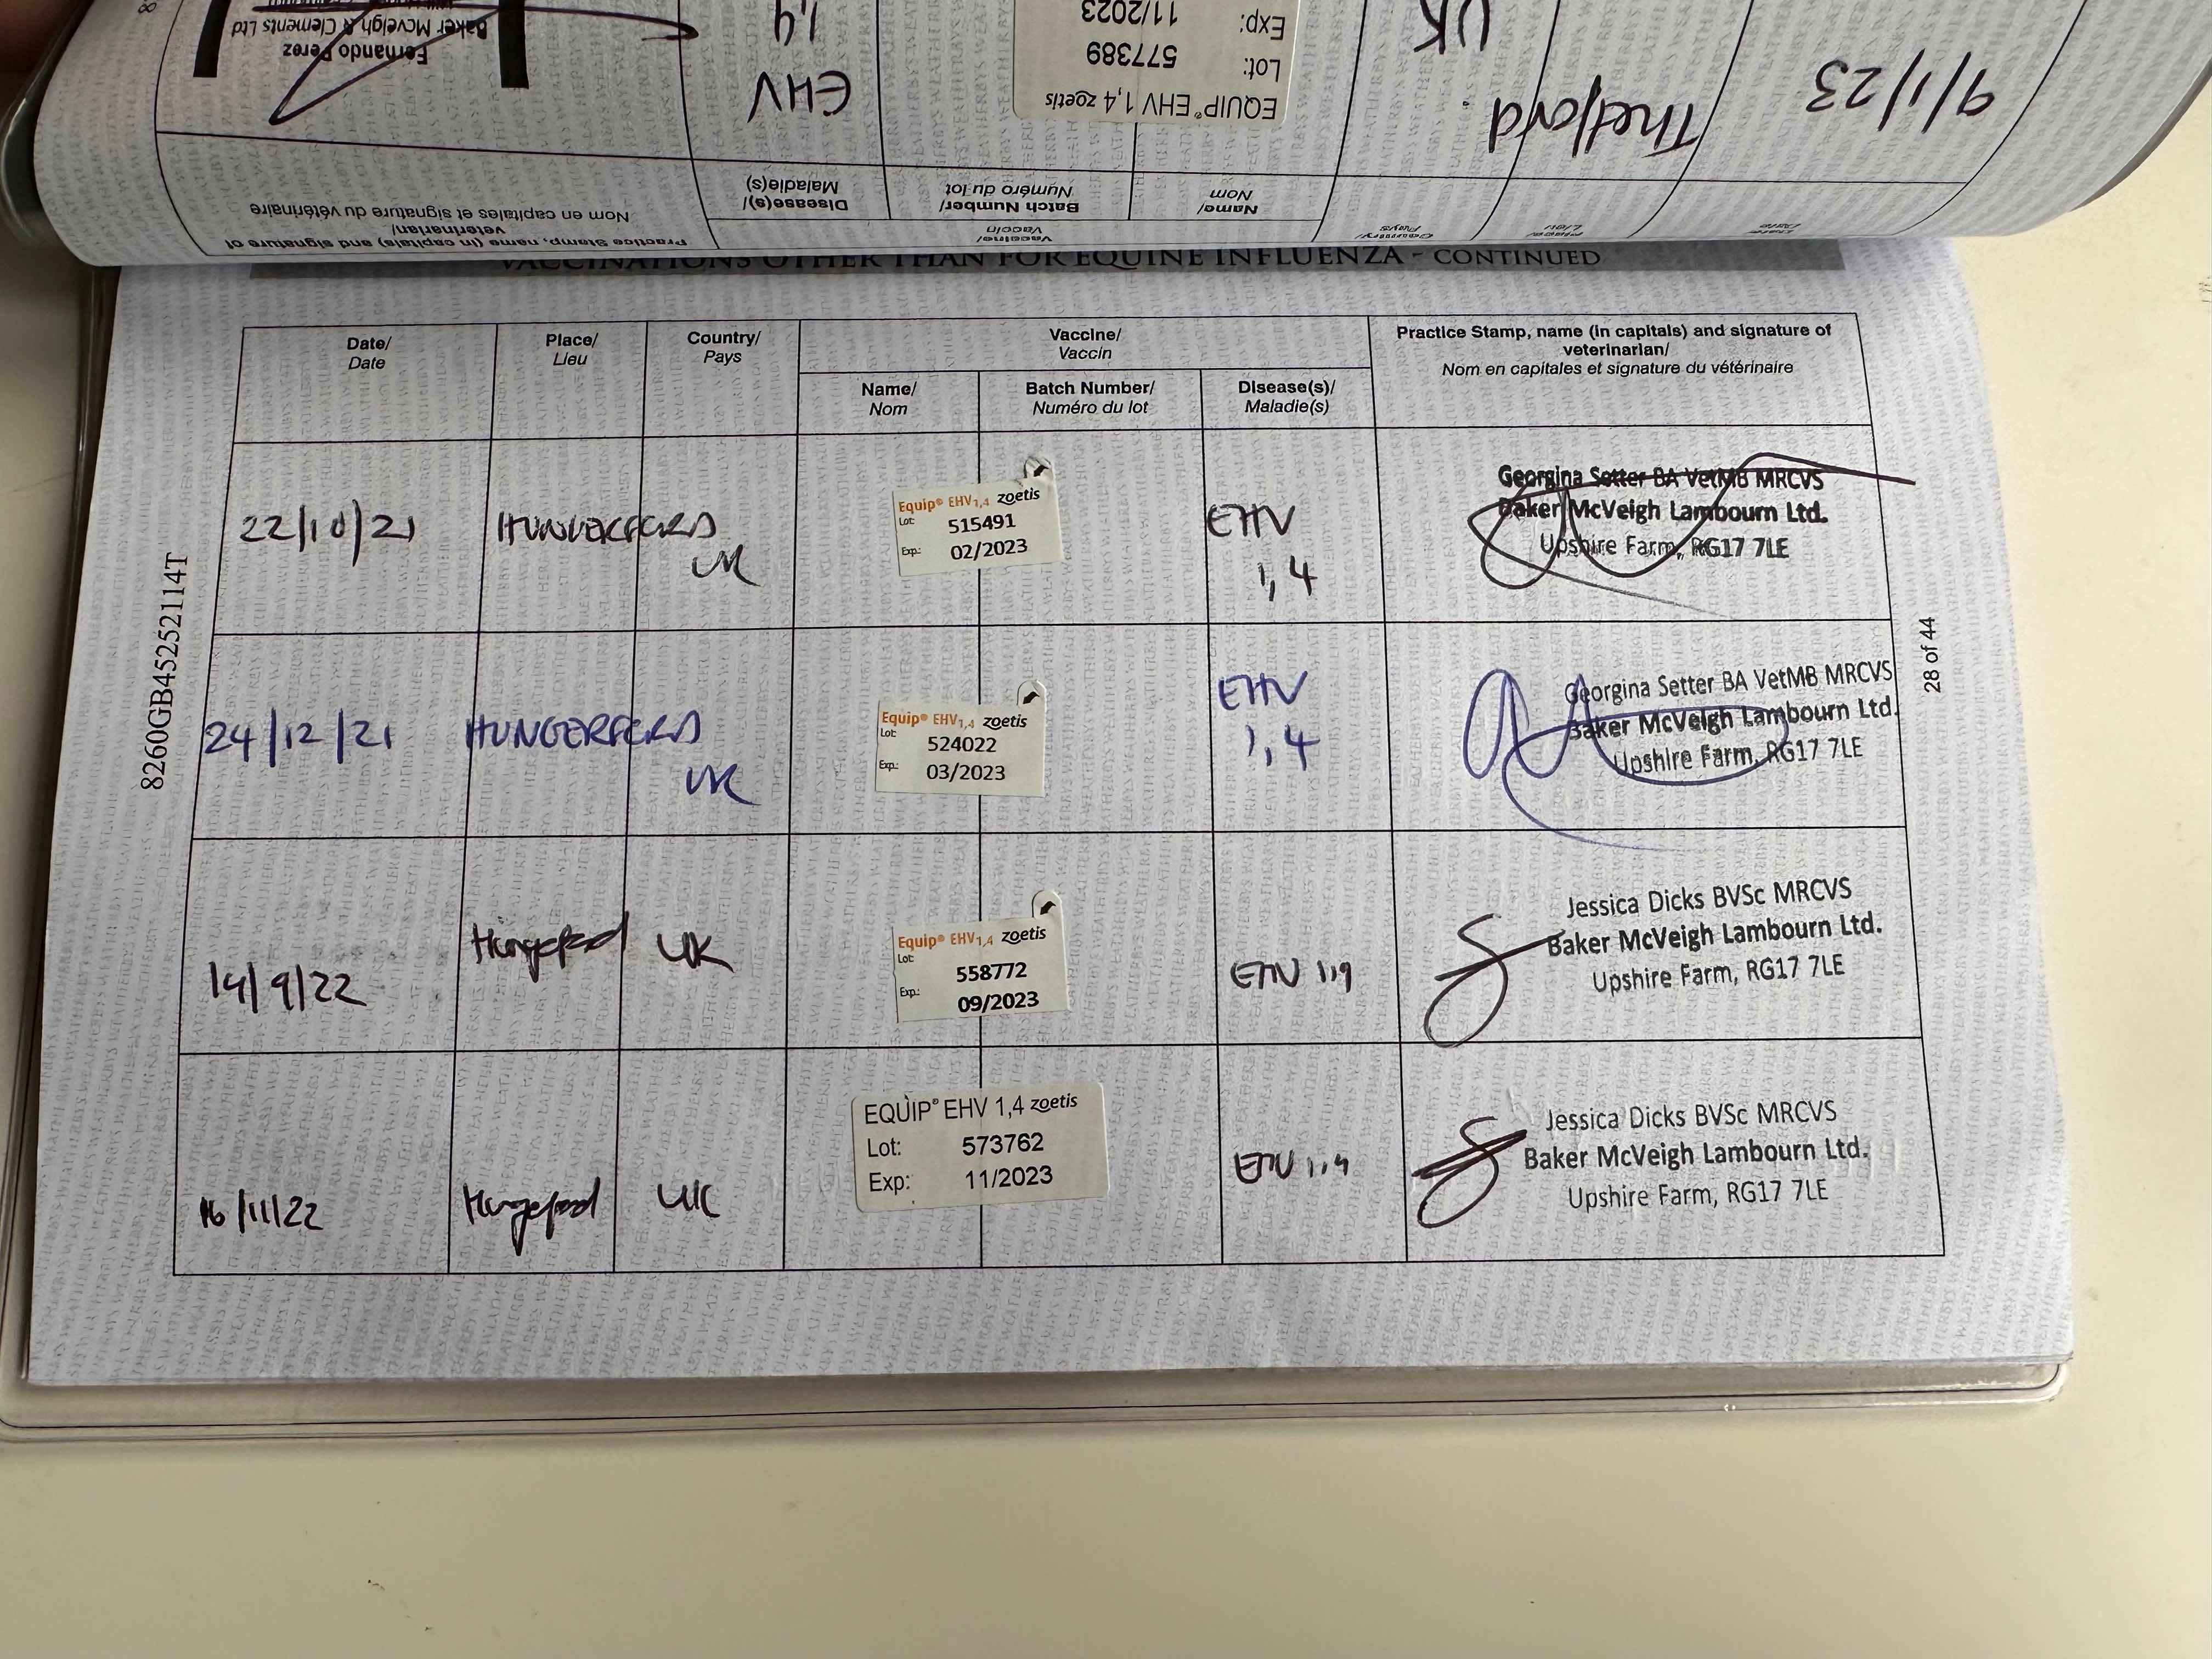 8
Fernando Perez
Baker Mcveigh & Clements Ltd
EHV
1,4
EQUIP® EHV 1,4 zoetis
Lot: 577389
Exp: 11/2023
UK
Thetford
9/1/23
Practice Stamp, name (in capitals) and signature of
veterinarian/
Nom en capitales et signature du vétérinaire
Vaccine/
Vaccin
Disease(s)/
Maladie(s)
Batch Number/
Numéro du lot
Name/
Nom
Country/
Pays
Place/
Lieu
Date/
Date
VACCINATIONS OTHER THAN FOR EQUINE INFLUENZA - CONTINUED
Date/
Date
Place/
Lieu
Country/
Pays
Vaccine/
Vaccin
Name/
Nom
Batch Number/
Numéro du lot
Disease(s)/
Maladie(s)
Practice Stamp, name (in capitals) and signature of
veterinarian/
Nom en capitales et signature du vétérinaire
22/10/21
HUNGERFORD
UK
Equip® EHV1,4 zoetis
Lot: 515491
Exp.: 02/2023
EHV
1,4
Georgina Setter BA VetMB MRCVS
Baker McVeigh Lambourn Ltd.
Upshire Farm, RG17 7LE
24/12/21
HUNGERFORD
UK
Equip® EHV1,4 zoetis
Lot: 524022
Exp.: 03/2023
EHV
1,4
Georgina Setter BA VetMB MRCVS
Baker McVeigh Lambourn Ltd.
Upshire Farm, RG17 7LE
14/9/22
Hungerford
UK
Equip® EHV1,4 zoetis
Lot: 558772
Exp.: 09/2023
EHV 1,4
Jessica Dicks BVSc MRCVS
Baker McVeigh Lambourn Ltd.
Upshire Farm, RG17 7LE
16/11/22
Hungerford
UK
EQUIP® EHV 1,4 zoetis
Lot: 573762
Exp: 11/2023
EHV 1,4
Jessica Dicks BVSc MRCVS
Baker McVeigh Lambourn Ltd.
Upshire Farm, RG17 7LE
8260GB45252114T
28 of 44